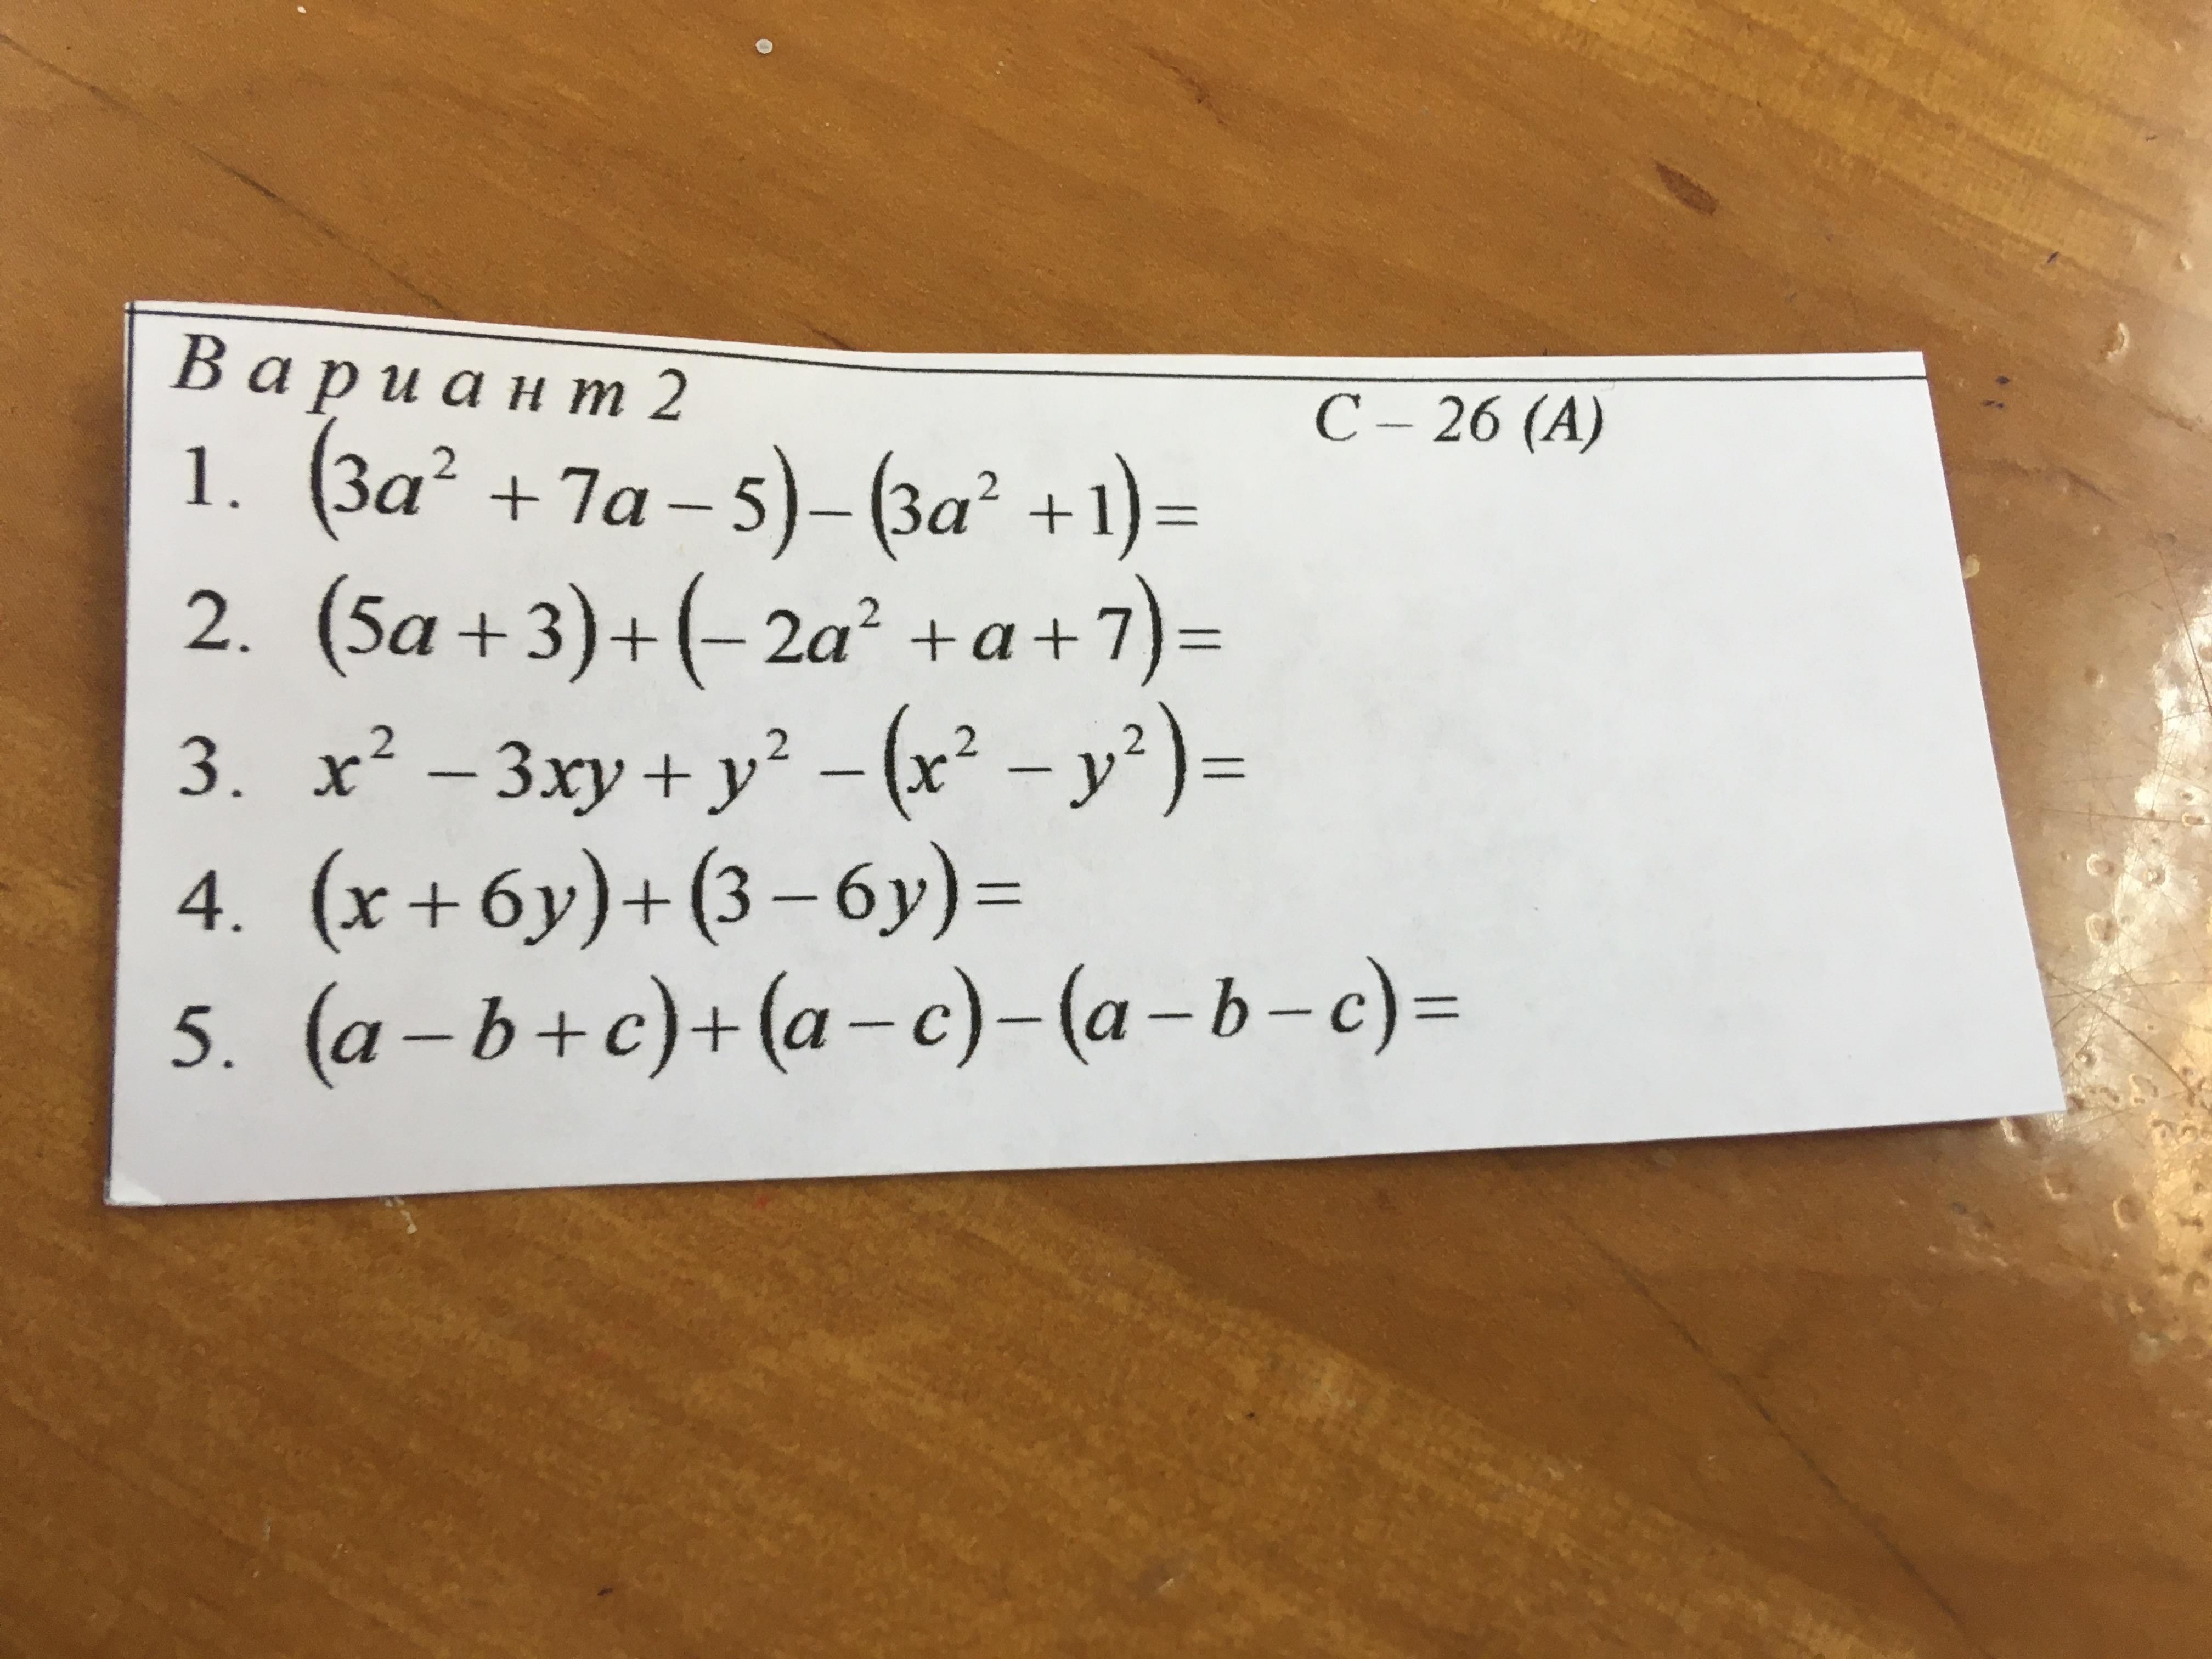 Вариант 2
С – 26 (А)
1. (3a² + 7a – 5) – (3a² + 1) =
2. (5a + 3) + (– 2a² + a + 7) =
3. x² – 3xy + y² – (x² – y²) =
4. (x + 6y) + (3 – 6y) =
5. (a – b + c) + (a – c) – (a – b – c) =